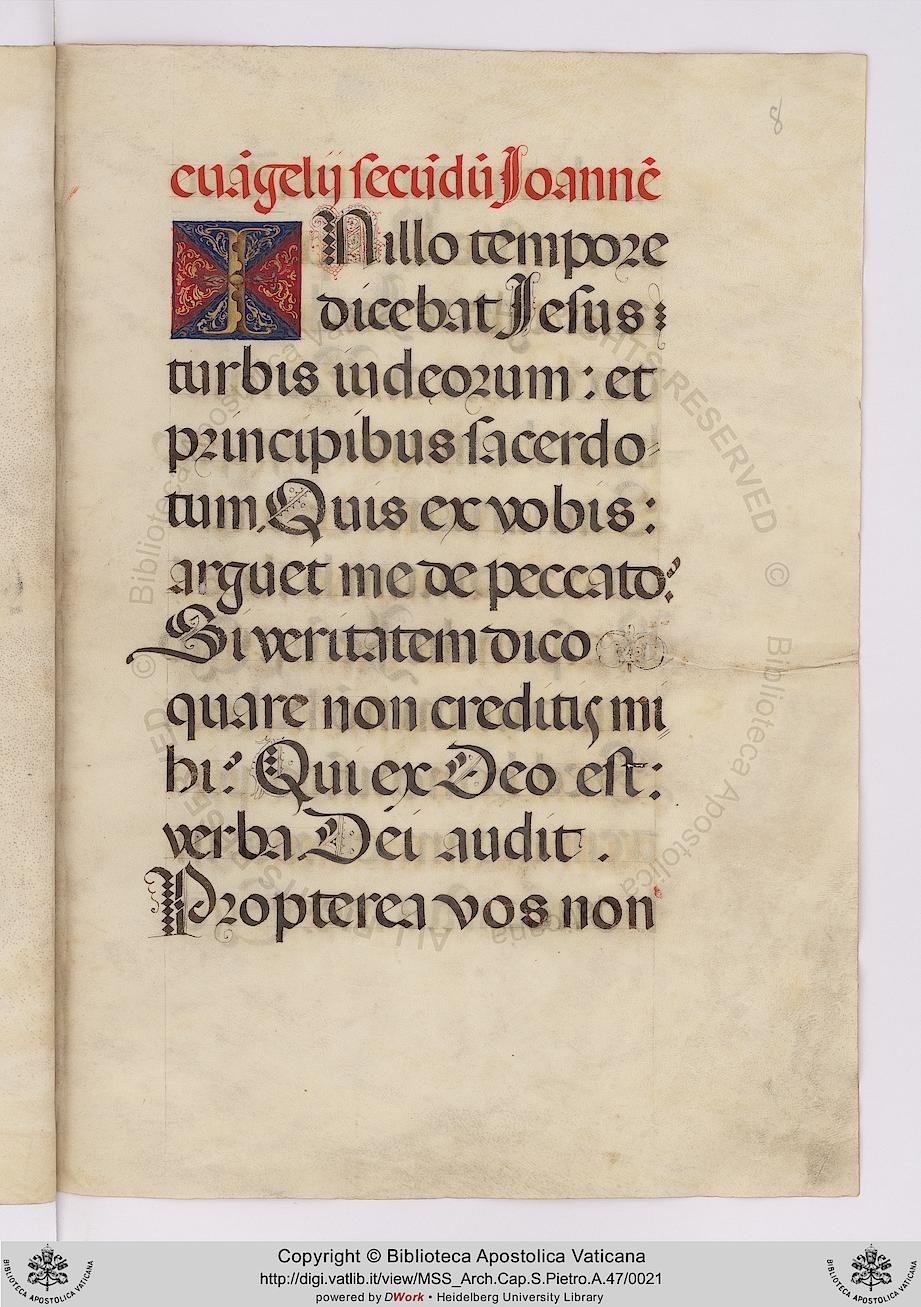 8
euāgelij secūdū Joannē
IN illo tempore
dicebat Jesus :
turbis iudeorum : et
principibus sacerdo-
tum Quis ex vobis :
arguet me de peccato?
Si veritatem dico
quare non creditis mi
hi? Qui ex Deo est :
verba Dei audit .
Propterea vos non
© Biblioteca Apostolica Vaticana
ALL RIGHTS RESERVED
Copyright © Biblioteca Apostolica Vaticana
http://digi.vatlib.it/view/MSS_Arch.Cap.S.Pietro.A.47/0021
powered by DWork • Heidelberg University Library
BIBLIOTECA APOSTOLICA VATICANA
BIBLIOTECA APOSTOLICA VATICANA